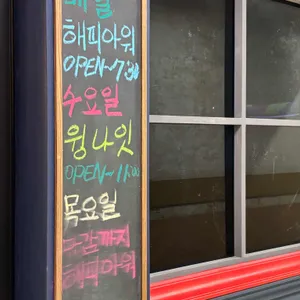 매일
해피아워
OPEN~7:30
수요일
윙나잇
OPEN~11:00
목요일
마감까지
해피아워